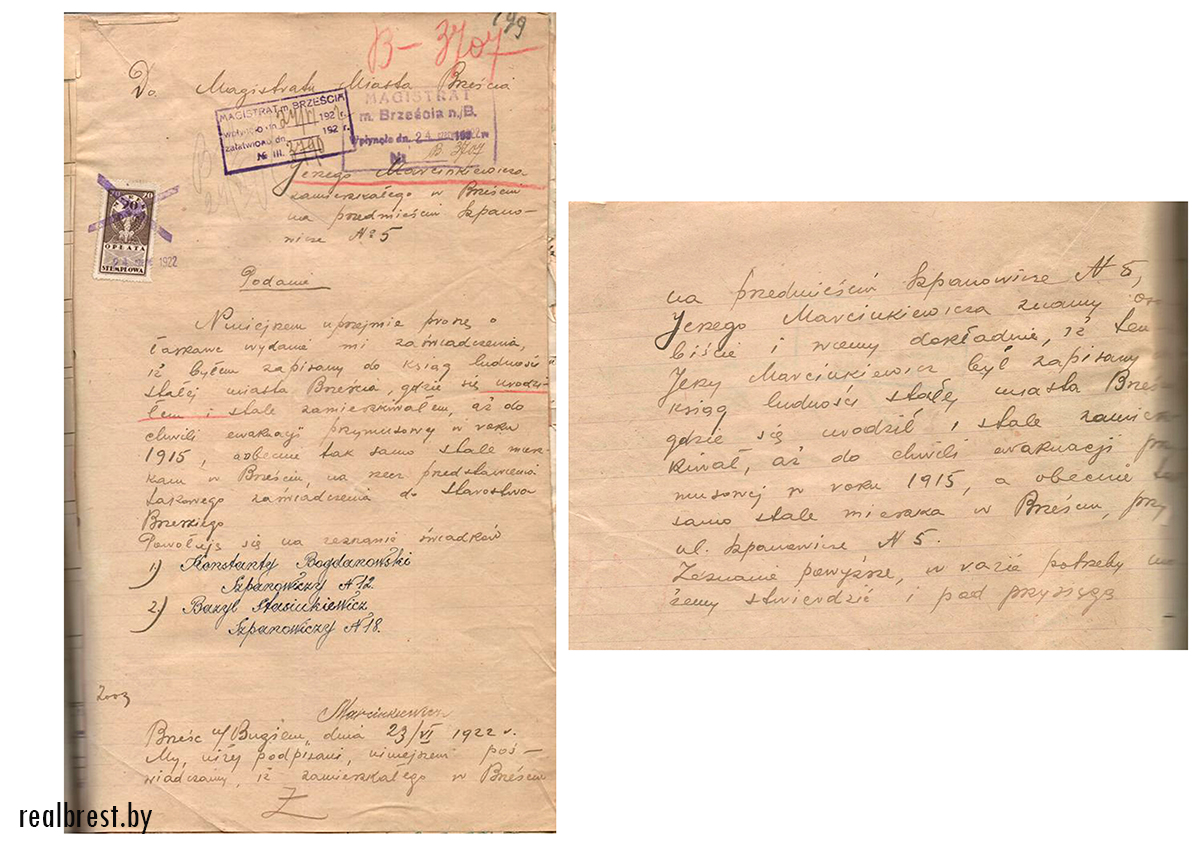 199
B - 3707
Do Magistratu Miasta Brześcia
MAGISTRAT m. BRZEŚCIA
wpłynęło dn. 24/VI 192 r.
załatwiono dn. 192 r.
№ III. 3790
MAGISTRAT
m. Brześcia n./B.
Wpłynęło dn. 24 1922
№ B 3707
Jerzego Marcinkiewicza
zamieszkałego w Brześciu
na przedmieściu Szpano-
wicze № 5
20 20
20
OPŁATA
STEMPLOWA
24 1922
Podanie
Niniejszem uprzejmie proszę o
łaskawe wydanie mi zaświadczenia,
iż byłem zapisany do ksiąg ludności
stałej miasta Brześcia, gdzie się urodzi-
łem i stale zamieszkiwałem, aż do
chwili ewakuacji przymusowej w roku
1915, a obecnie tak samo stale miesz-
kam w Brześciu, na rzecz przedstawienia
takowego zaświadczenia do Starostwa
Brzeskiego
Powołuję się na zeznanie świadków
1) Konstanty Bogdanowski
Szpanowiczy N 12.
2) Bazyl Stasiukiewicz
Szpanowiczy N 18.
Marcinkiewicz
Brześć n/Bugiem, dnia 23/VI 1922 r.
My, niżej podpisani, niniejszem poś-
wiadczamy, iż zamieszkałego w Brześciu
na przedmieściu Szpanowicze N 5,
Jerzego Marcinkiewicza znamy oso-
biście i wiemy dokładnie, iż ten
Jerzy Marcinkiewicz był zapisany
ksiąg ludności stałej miasta Brześ
gdzie się urodził i stale zamiesz
kiwał, aż do chwili ewakuacji przy
musowej w roku 1915, a obecnie
samo stale mieszka w Brześciu, przy
ul. Szpanowicze N 5.
Zeznanie powyższe, w razie potrzeby mo
żemy stwierdzić i pod przysięgą
realbrest.by